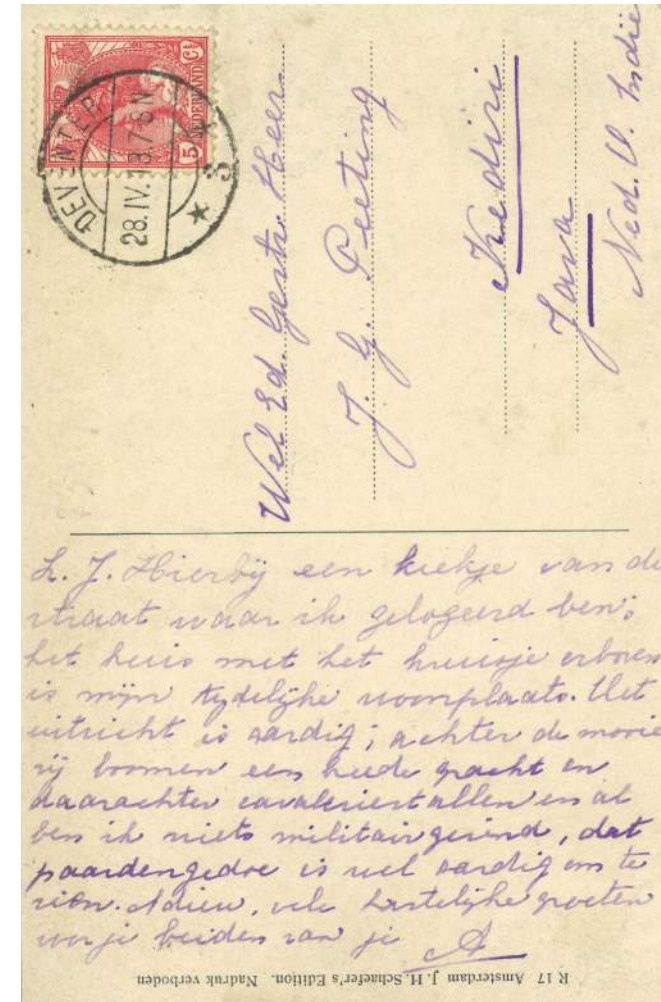 NEDERLAND
5 Ct
DEVENTER
28.IV.13.7-8N
★ 3 ★
Wel Ed. Gestr. Heer
J. G. Peeting
Kediri
Java
Ned. O. Indië
L. J. Hierbÿ een kiekje van de
straat waar ik gelogeerd ben;
het huis met het kruisje erboven
is mijn tÿdelÿke woonplaats. Het
uitzicht is aardig; achter de mooie
rÿ boomen een breede gracht en
daarachter cavaleriestallen en al
ben ik niets militairgezind, dat
paardengedoe is wel aardig om te
zien. Adieu, vele hartelÿke groeten
voor je beiden van je A
R 17 Amsterdam J. H. Schaefer's Edition. Nadruk verboden